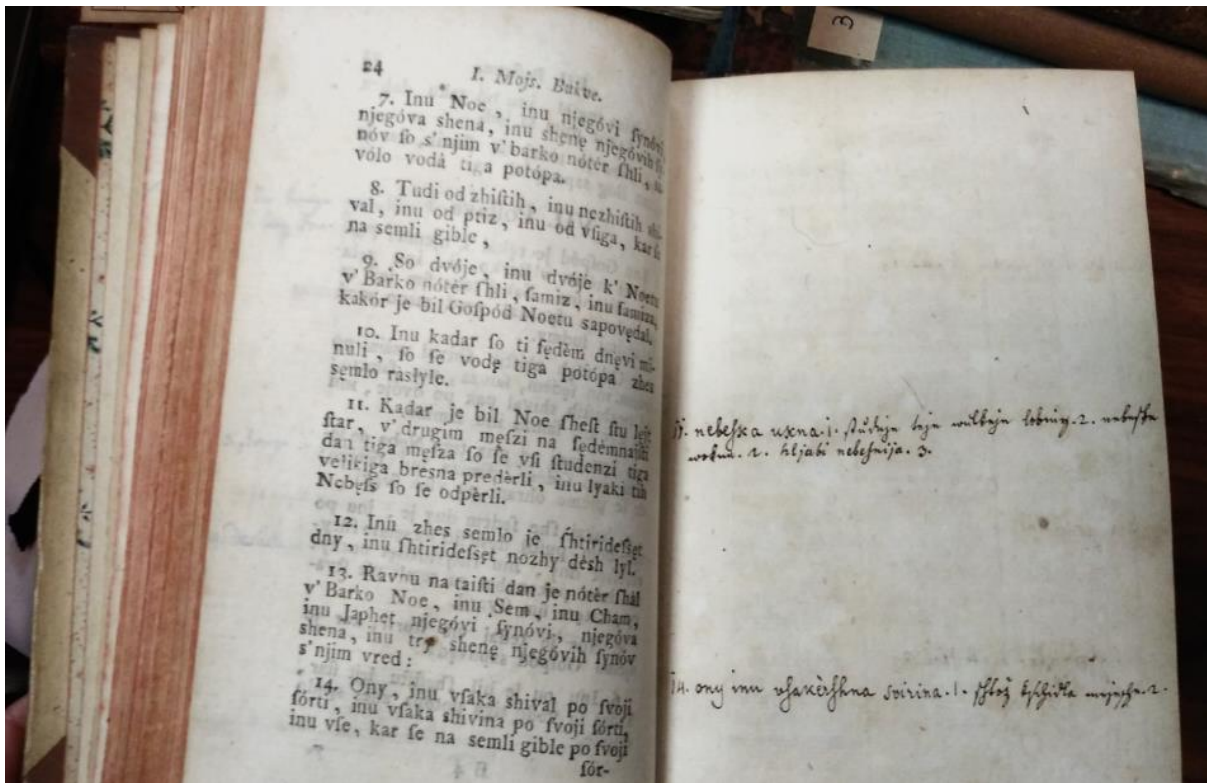 24 I. Mojs. Bukve.
7. Inu Noe, inu njegóvi ſynóvi,
njegóva shena, inu shenę njegóvih ſy-
nóv ſo s'njim v' barko nótèr ſhli, sa-
vólo vodà tiga potópa.
8. Tudi od zhiſtih, inu nezhiſtih shi-
val, inu od ptiz, inu od vſiga, kar ſe
na semli gible,
9. So dvóje, inu dvóje k' Noetu
v' Barko nótèr ſhli, ſamiz, inu ſamiza,
kakór je bil Goſpód Noetu sapovędal.
10. Inu kadar ſo ti ſędèm dnęvi mi-
nuli, ſo ſe vodę tiga potópa zhes
sęmlo raslyle.
11. Kadar je bil Noe ſheſt ſtu lejt
ſtar, v' drugim męſzi na ſedèmnajſti
dan tiga męſza ſo ſe vſi ſtudenzi tiga
velikiga bresna predèrli, inu lyaki tih
Nebęſs ſo ſe odpèrli.
12. Inu zhes semlo je ſhtirideſsęt
dny, inu ſhtirideſsęt nozhy dèsh lyl.
13. Ravnu na taiſti dan je nótèr ſhàl
v' Barko Noe, inu Sem, inu Cham,
inu Japhet njegóvi ſynóvi, njegóva
shena, inu try shenę njegóvih ſynóv
s'njim vred:
14. Ony, inu vſaka shival po ſvoji
ſórti, inu vſaka shivina po ſvoji ſórti,
inu vſe, kar ſe na semli gible po ſvoji
ſór-
11. nebeſka ukna. 1. 2. nebeſke
2. hljabi nebeſnija. 3.
14. ony inu vſakèrſhna svirina. 1. 2.
3